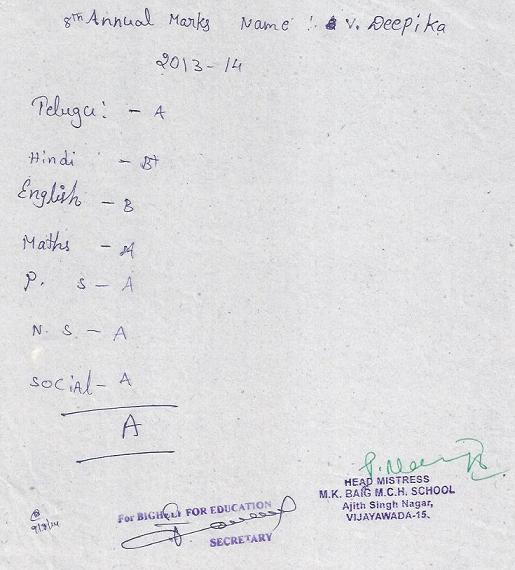 8th Annual Marks Name : V. Deepika
2013-14
Telugu: - A
Hindi - B+
English - B
Maths - A
P. S - A
N. S - A
Social - A
A
HEAD MISTRESS
M.K. BAIG M.C.H. SCHOOL
Ajith Singh Nagar,
VIJAYAWADA-15.
For BIGHELP FOR EDUCATION
SECRETARY